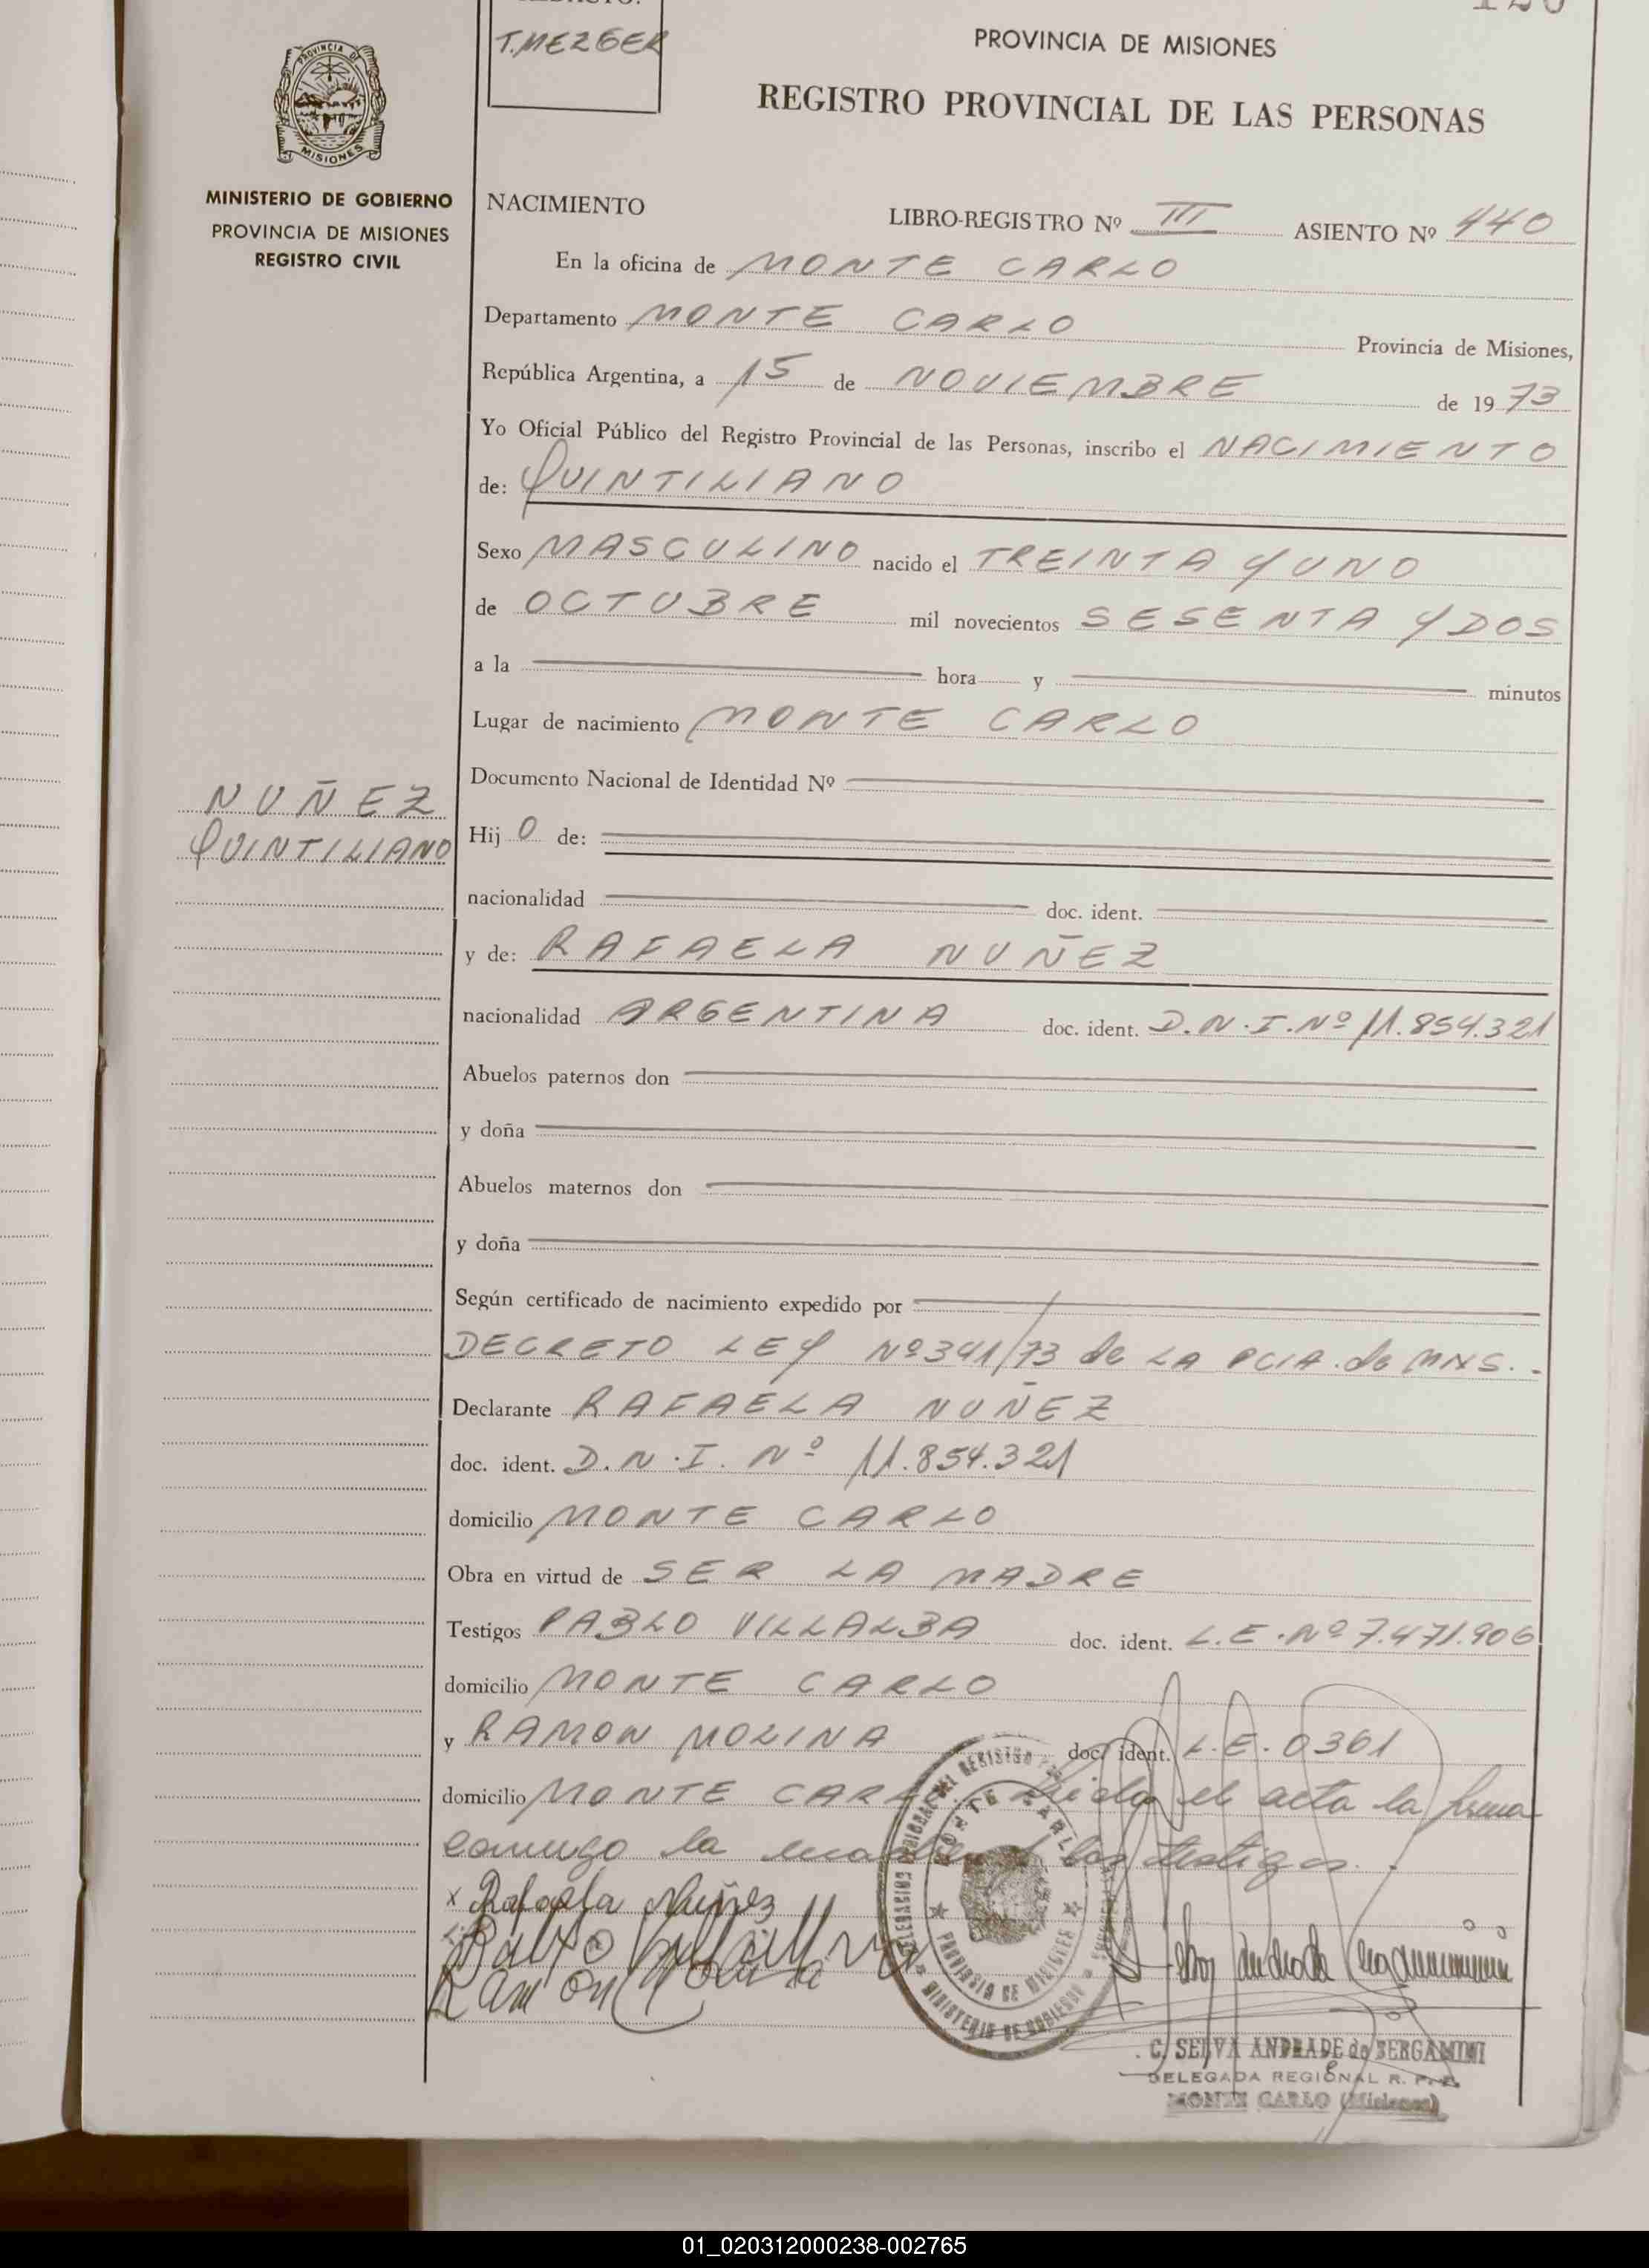 T. MEZGER
PROVINCIA DE MISIONES
REGISTRO PROVINCIAL DE LAS PERSONAS
PROVINCIA DE
MISIONES
MINISTERIO DE GOBIERNO
PROVINCIA DE MISIONES
REGISTRO CIVIL
NACIMIENTO LIBRO-REGISTRO Nº III ASIENTO Nº 440
En la oficina de MONTE CARLO
Departamento MONTE CARLO Provincia de Misiones,
República Argentina, a 15 de NOVIEMBRE de 1973
Yo Oficial Público del Registro Provincial de las Personas, inscribo el NACIMIENTO
de: QUINTILIANO
Sexo MASCULINO nacido el TREINTA Y UNO
de OCTUBRE mil novecientos SESENTA Y DOS
a la hora y minutos
Lugar de nacimiento MONTE CARLO
Documento Nacional de Identidad Nº
NUÑEZ
QUINTILIANO
Hij O de:
nacionalidad doc. ident.
y de: RAFAELA NUÑEZ
nacionalidad ARGENTINA doc. ident. D.N.I. Nº 11.854.321
Abuelos paternos don
y doña
Abuelos maternos don
y doña
Según certificado de nacimiento expedido por
DECRETO LEY Nº 341/73 de LA PCIA. de MNS.-
Declarante RAFAELA NUÑEZ
doc. ident. D.N.I. Nº 11.854.321
domicilio MONTE CARLO
Obra en virtud de SER LA MADRE
Testigos PABLO VILLALBA doc. ident. L.E. Nº 7.471.906
domicilio MONTE CARLO
y RAMON MOLINA doc. ident. L.E. 0361
domicilio MONTE CARLO. Leida el acta la firma
conmigo la madre y los testigos.
x Rafaela Nuñez
Ramón Molina
MONTE CARLO
PROVINCIA DE MISIONES
MINISTERIO DE GOBIERNO
C. SELVA ANDRADE de BERGAMINI
DELEGADA REGIONAL R. P. P.
MONTE CARLO (Misiones)
01_020312000238-002765